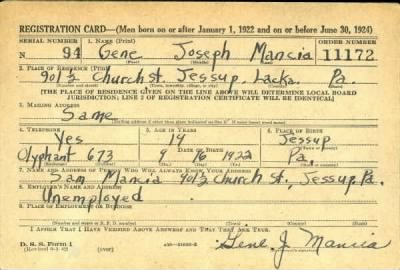 REGISTRATION CARD—(Men born on or after January 1, 1922 and on or before June 30, 1924)
SERIAL NUMBER 1. NAME (Print) ORDER NUMBER
N 94 Gene Joseph Mancia 11172
(First) (Middle) (Last)
2. PLACE OF RESIDENCE (Print)
901½ Church St. Jessup, Lacka. Pa.
(Number and street) (Town, township, village, or city) (County) (State)
[THE PLACE OF RESIDENCE GIVEN ON THE LINE ABOVE WILL DETERMINE LOCAL BOARD
JURISDICTION; LINE 2 OF REGISTRATION CERTIFICATE WILL BE IDENTICAL]
3. MAILING ADDRESS
Same
[Mailing address if other than place indicated on line 2. If same insert word same]
4. TELEPHONE 5. AGE IN YEARS 6. PLACE OF BIRTH
Yes 19 Jessup
DATE OF BIRTH
Olyphant 673 9 16 1922 Pa.
(Exchange) (Number) (Mo.) (Day) (Yr.) (State or country)
7. NAME AND ADDRESS OF PERSON WHO WILL ALWAYS KNOW YOUR ADDRESS
Sam Mancia 901½ Church St., Jessup, Pa.
8. EMPLOYER'S NAME AND ADDRESS
Unemployed
9. PLACE OF EMPLOYMENT OR BUSINESS
(Number and street or R. F. D. number) (Town) (County) (State)
I AFFIRM THAT I HAVE VERIFIED ABOVE ANSWERS AND THAT THEY ARE TRUE.
D. S. S. Form 1
(over)
Gene J. Mancia